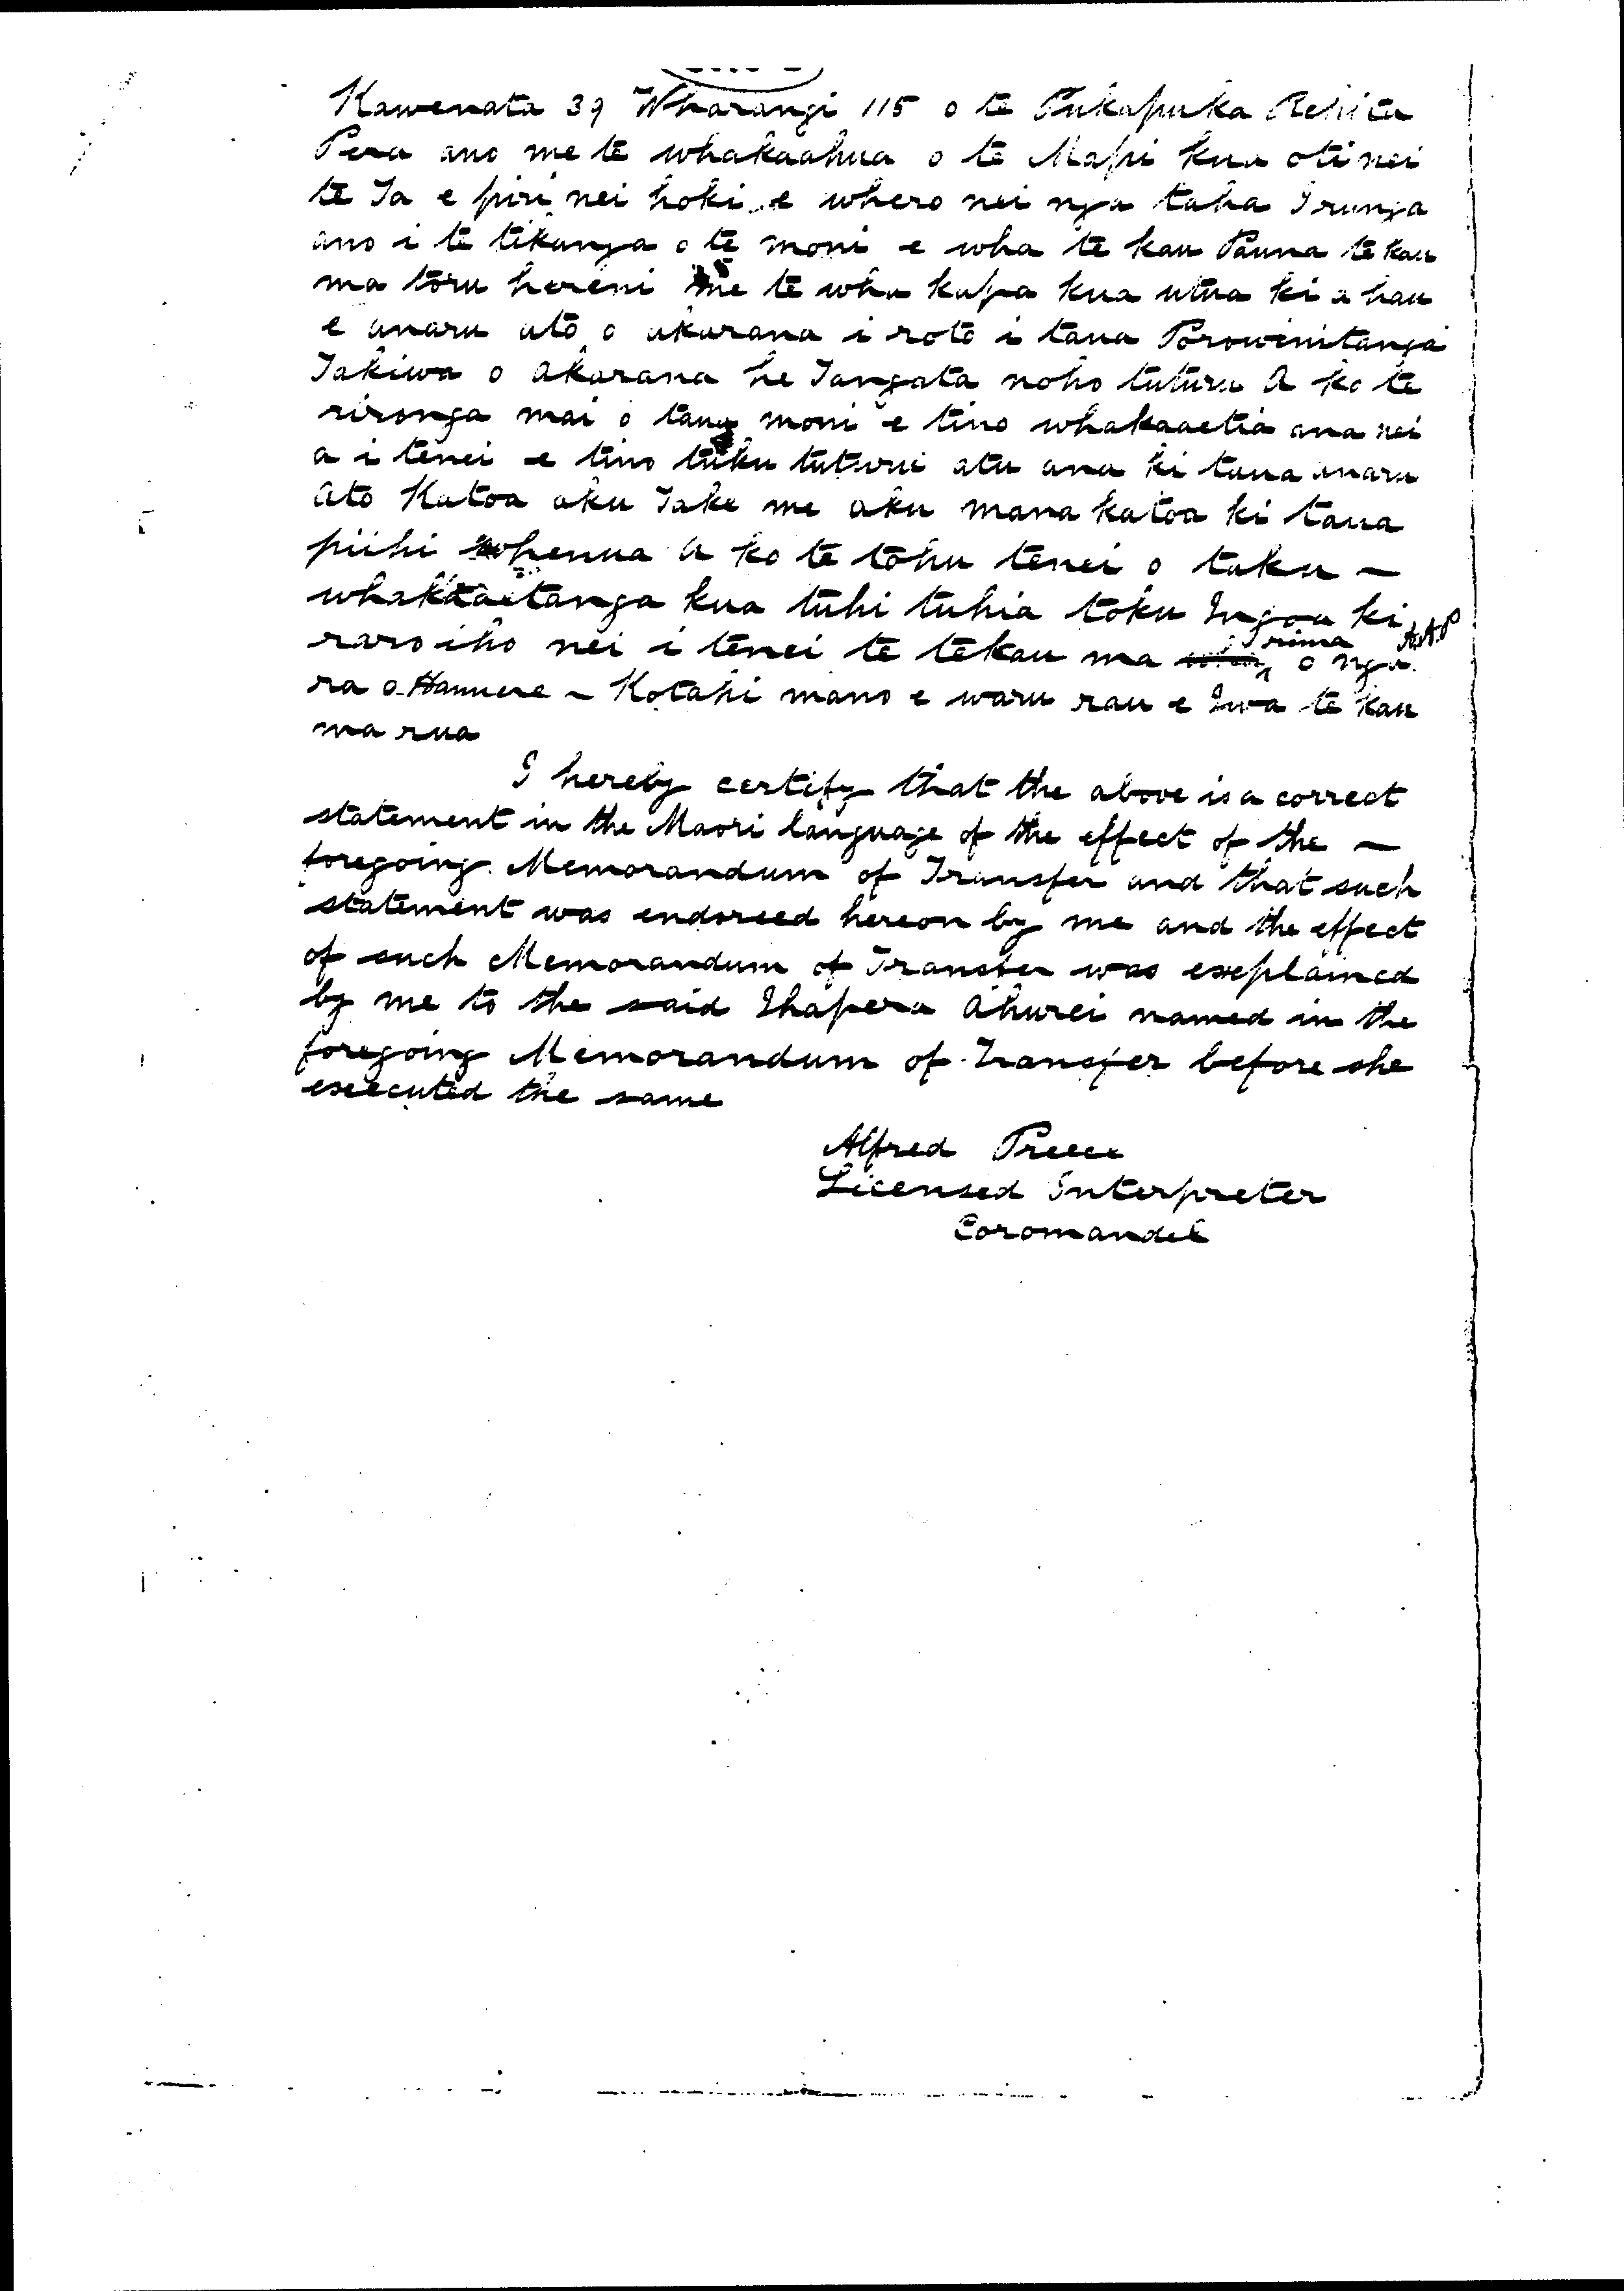 Kawenata 39 Wharangi 115 o te Pukapuka Rehita
Pera ano me te whakaahua o te Mapi kua oti nei
te Ta e piri nei hoki e whero nei nga taha I runga
ano i te tikanga o te moni e wha te kau Pauna te kau
ma toru hereni me te wha kapa kua utua ki a hau
e anaru ato o akarana i roto i taua Porowinitanga
Takiwa o Akarana he Tangata noho tuturu A ko te
rironga mai o taua moni e tino whakaaetia ana nei
a i tenei e tino tuku tuturu atu ana ki taua anaru
Ato Katoa aku Take me aku mana katoa ki taua
piihi whenua A ko te tohu tenei o taku ~
whakaaetanga kua tuhi tuhia toku Ingoa ki
raro iho nei i tenei te tekau ma rima o nga AAP
ra o Hanuere ~ Kotahi mano e waru rau e Iwa te kau
ma rua
I hereby certify that the above is a correct
statement in the Maori language of the effect of the ~
foregoing Memorandum of Transfer and that such
statement was endorsed hereon by me and the effect
of such Memorandum of Transfer was explained
by me to the said Ihapera Ahurei named in the
foregoing Memorandum of Transfer before she
executed the same
Alfred Preece
Licensed Interpreter
Coromandel